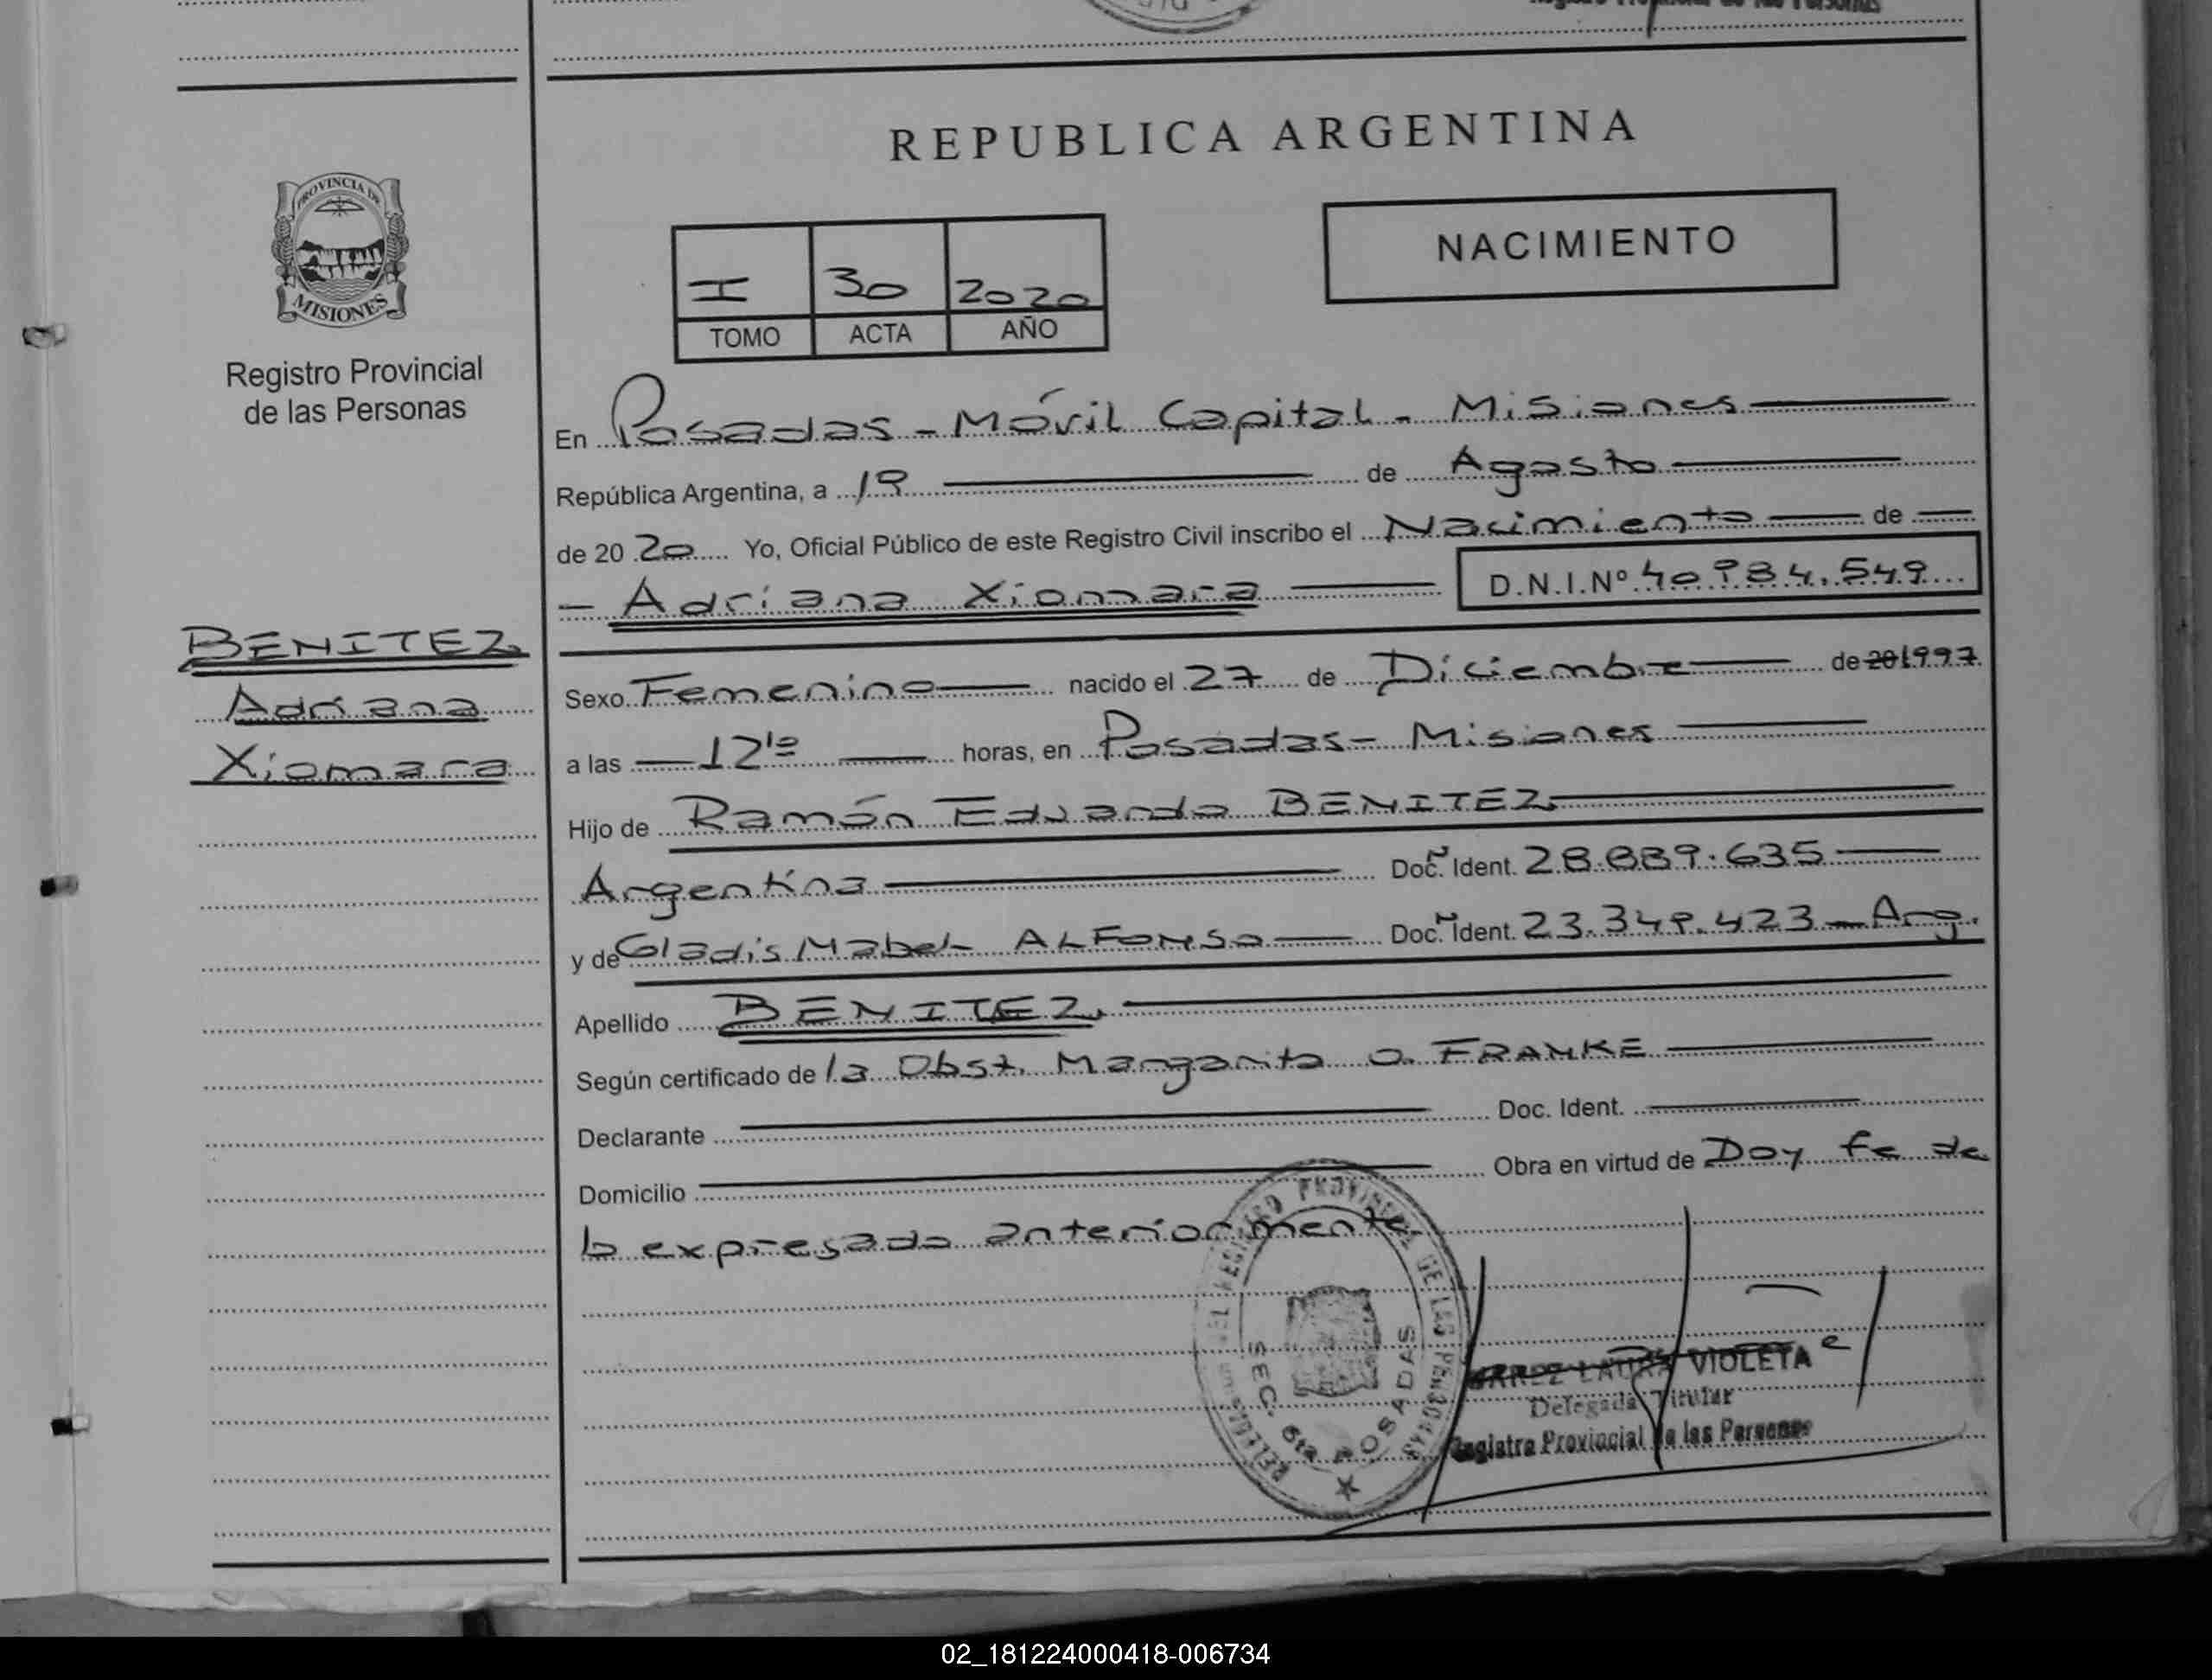 REPUBLICA ARGENTINA
PROVINCIA DE
MISIONES
Registro Provincial
de las Personas
I 30 2020
TOMO ACTA AÑO
NACIMIENTO
En Posadas - Móvil Capital - Misiones
República Argentina, a 19 de Agosto
de 20 20 Yo, Oficial Público de este Registro Civil inscribo el Nacimiento de
- Adriana Xiomara D.N.I.Nº 40.984.549
BENITEZ
Adriana
Xiomara
Sexo Femenino nacido el 27 de Diciembre de 20 1997
a las 12 10 horas, en Posadas - Misiones
Hijo de Ramón Eduardo BENITEZ
Argentina Doc. Ident. 28.889.635
y de Gladis Mabel ALFONSO Doc. Ident. 23.349.423 - Arg.
Apellido BENITEZ
Según certificado de la Obst. Margarita O. FRANKE
Declarante Doc. Ident.
Domicilio Obra en virtud de Doy fe de
lo expresado anteriormente
REGISTRO PROVINCIAL DE LAS PERSONAS
SEC. 6ta POSADAS
LAURA VIOLETA
Delegada Titular
Registro Provincial de las Personas
02_181224000418-006734